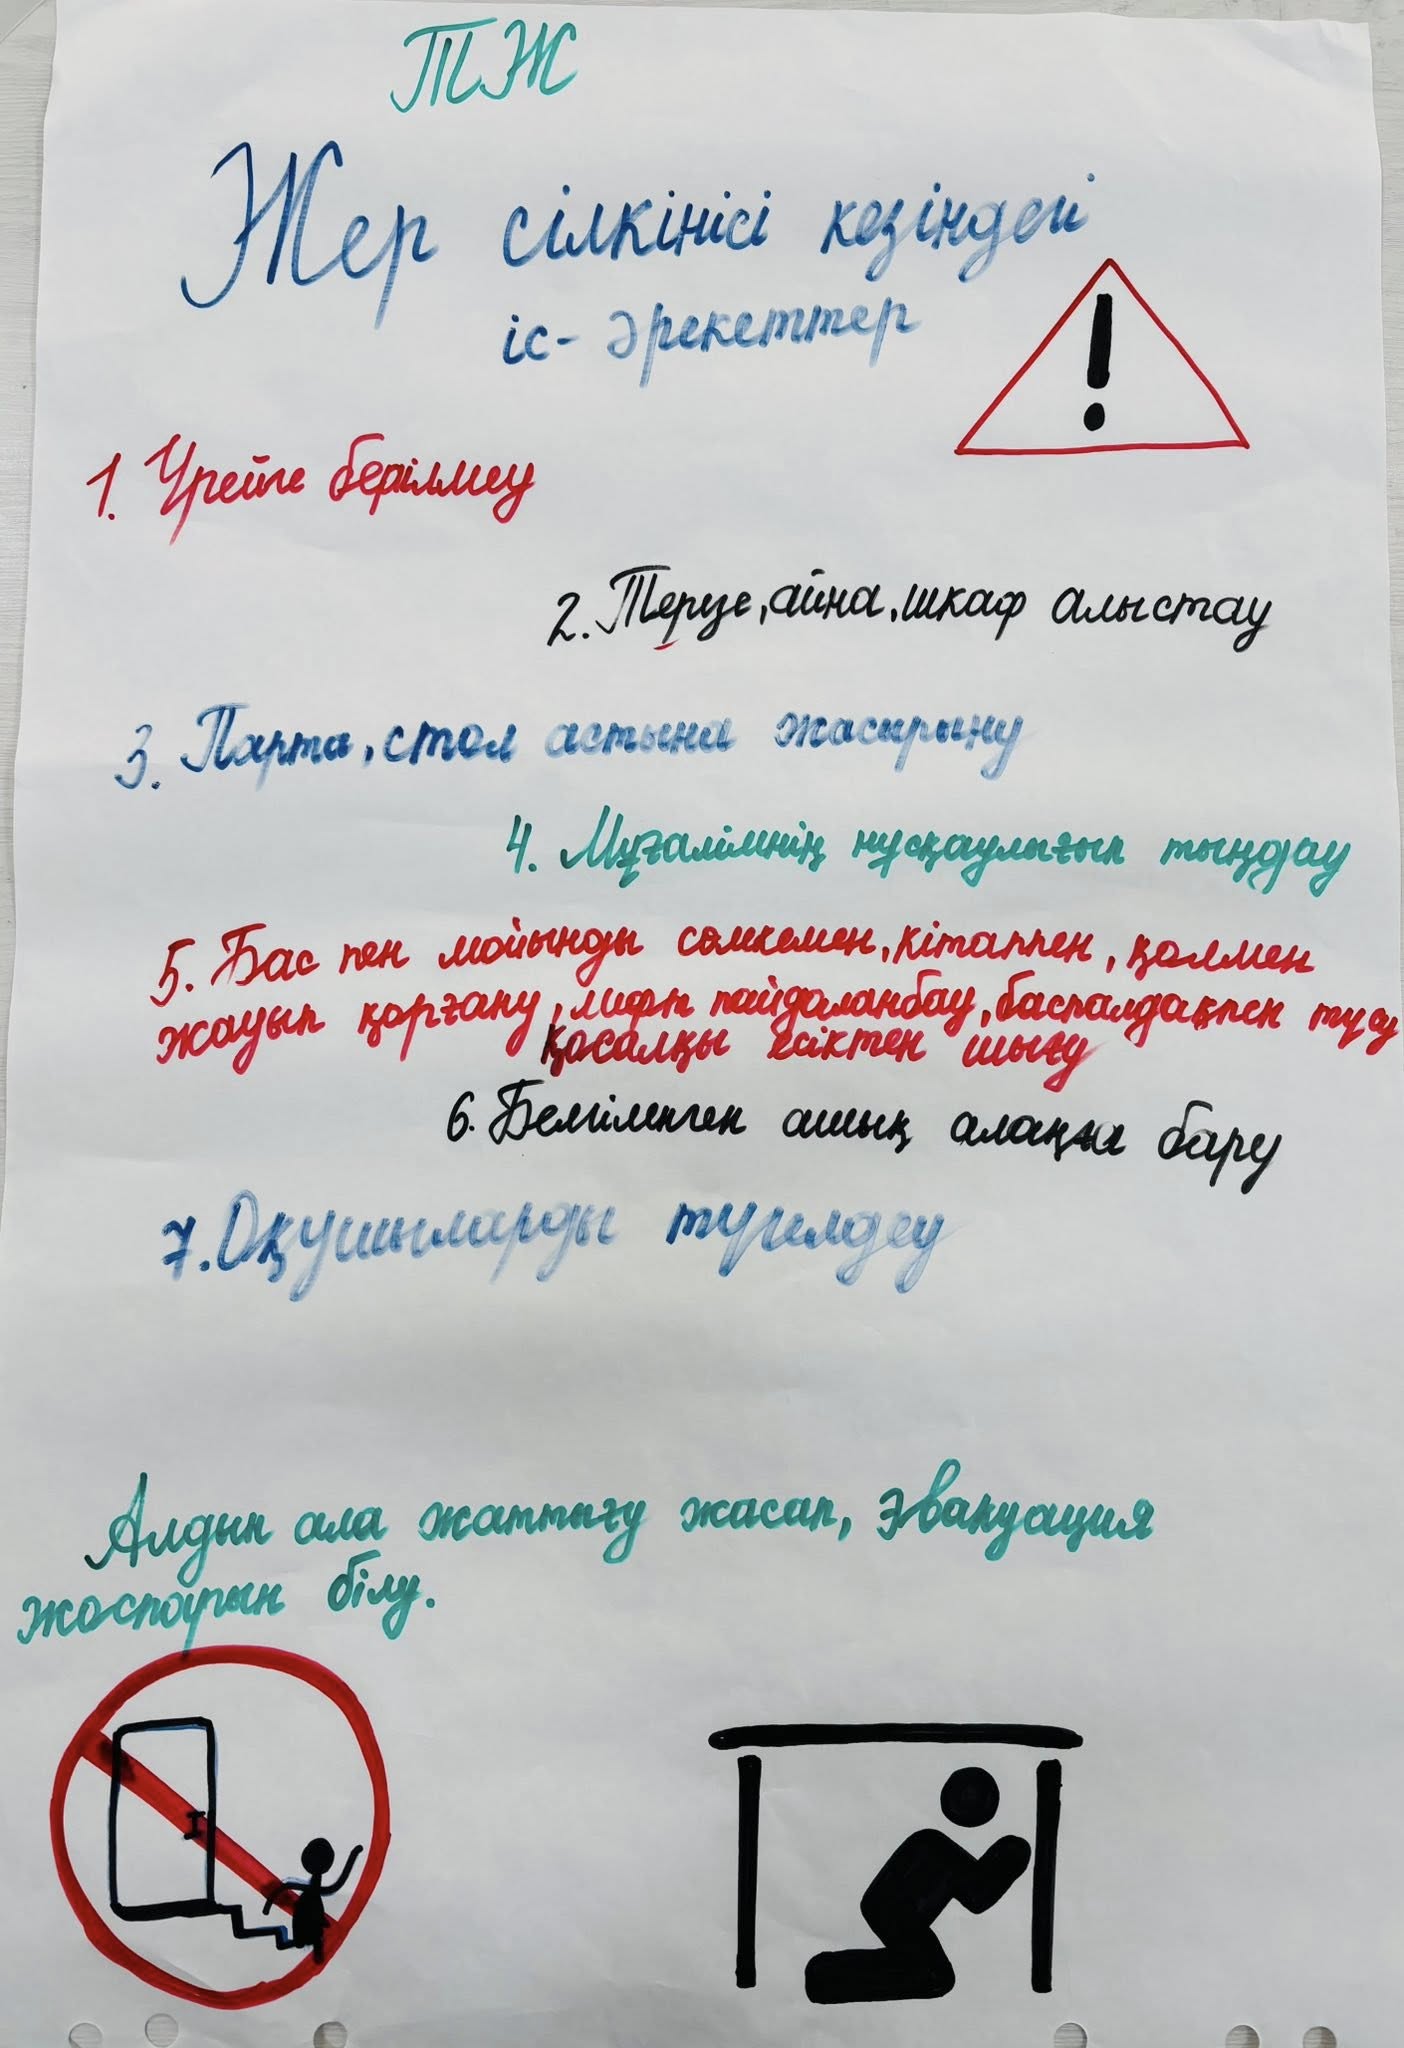 ТЖ
Жер сілкінісі кезіндегі
іс-әрекеттер
!
1. Үрейге берілмеу
2. Терезе, айна, шкаф алыстау
3. Парта, стол астына жасырыну
4. Мұғалімнің нұсқаулығын тыңдау
5. Бас пен мойынды сөмкемен, кітаппен, қолмен
жауып қорғану, лифт пайдаланбау, баспалдақпен түсу
қосалқы есіктен шығу
6. Белгіленген ашық алаңға бару
7. Оқушыларды түгелдеу
Алдын ала жаттығу жасап, эвакуация
жоспарын білу.